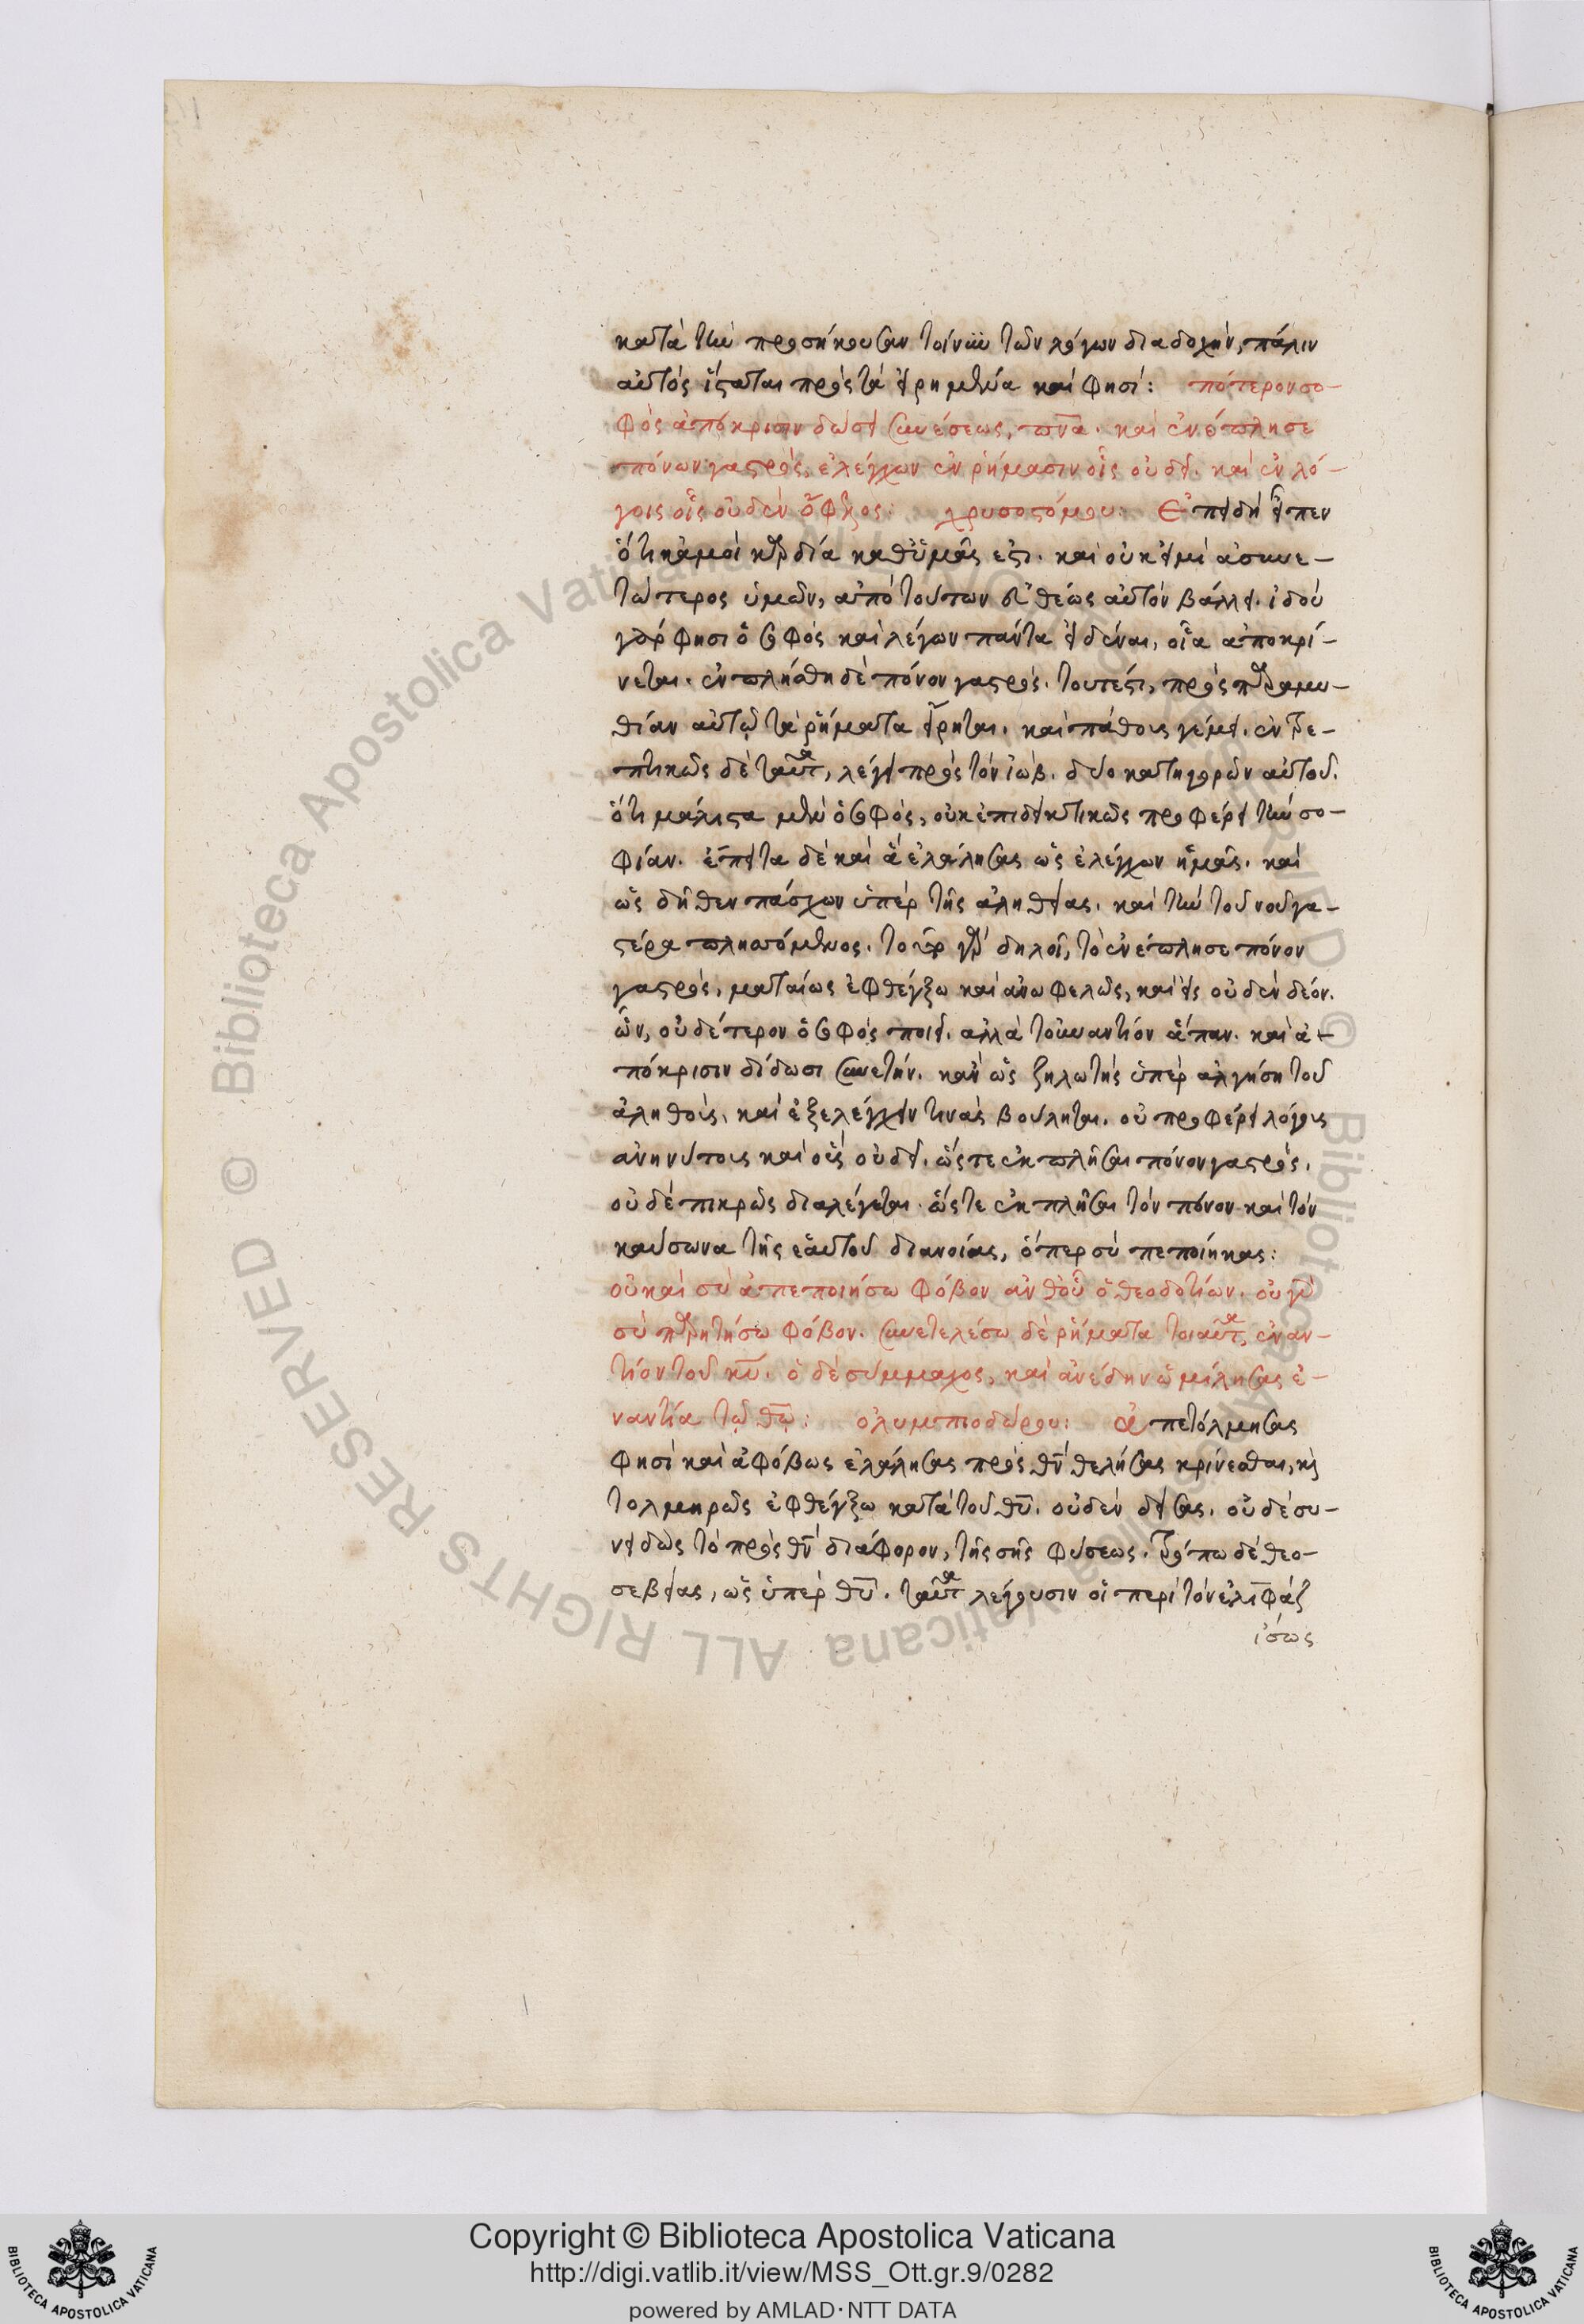 κατὰ τὴν προσήκουσαν τοίνυν τῶν λόγων διαδοχήν, πάλιν
αὐτὸς ἵσταται πρὸς τὰ εἰρημένα καὶ φησί: πότερον σο-
φὸς ἀπόκρισιν δώσει συνέσεως, πν̅α. καὶ ἐνέπλησε
πόνων γαστρός, ἐλέγχων ἐν ῥήμασιν οἷς οὐ δεῖ. καὶ ἐν λό-
γοις οἷς οὐδὲν ὄφελος: χρυσοστόμου: Ἐπειδὴ εἶπεν
ὅτι κἀμοὶ καρδία καθ' ὑμᾶς ἐστι. καὶ οὐκ εἰμὶ ἀσυνε-
τώτερος ὑμῶν, ἀπὸ τούτων εὐθέως αὐτὸν βάλλει. ἰδοὺ
γάρ φησι ὁ σοφὸς καὶ λέγων πάντα εἰδέναι, οἷα ἀποκρί-
νεται. ἐνεπλήσθη δὲ πόνον γαστρός. τουτέστι, πρὸς παραμυ-
θίαν αὐτῷ τὰ ῥήματα εἴρηται. καὶ πάθους γέμει. ἐντρε-
πτικῶς δὲ ταῦτα, λέγει πρὸς τὸν ἰώβ. δύο κατηγορῶν αὐτοῦ.
ὅτι μάλιστα μὲν ὁ σοφός, οὐκ ἐπιδεικτικῶς προφέρει τὴν σο-
φίαν. ἔπειτα δὲ καὶ ἃ ἐλάλησας ὡς ἐλέγχων ἡμᾶς. καὶ
ὡς δῆθεν πάσχων ὑπὲρ τῆς ἀληθείας. καὶ τὴν τοῦ νοῦ γα-
στέρα πλησόμενος. τοῦτο γὰρ δηλοῖ, τὸ ἐνέπλησε πόνον
γαστρός, ματαίως ἐφθέγξω καὶ ἀνωφελῶς, καὶ εἰς οὐδὲν δέον.
ὧν, οὐδέτερον ὁ σοφὸς ποιεῖ. ἀλλὰ τοὐναντίον ἅπαν. καὶ ἀ-
πόκρισιν δίδωσι συνετήν. κἂν ὡς ζηλωτὴς ὑπεραλγήση τοῦ
ἀληθοῦς. καὶ ἐξελέγχειν τινὰς βούληται. οὐ προφέρει λόγους
ἀνηνύτους καὶ οἷς οὐ δεῖ. ὥστε ἐκπλῆσαι πόνον γαστρός.
οὐδὲ πικρῶς διαλέγεται. ὥστε ἐκπλῆσαι τὸν πόνον καὶ τὸν
καύσωνα τῆς ἑαυτοῦ διανοίας, ὅπερ σὺ πεποίηκας:
οὐ καὶ σὺ ἀπεποιήσω φόβον ἀνθ' οὗ ὁ θεοδοτίων. οὐ γὰρ
σὺ παρητήσω φόβον. συνετελέσω δὲ ῥήματα τοιαῦτα ἐναν-
τίον τοῦ κυ̅. ὁ δὲ σύμμαχος, καὶ ἀνέδην ὡμίλησας ἐ-
ναντία τῷ θω̅: ὀλυμπιοδώρου: ἀπετόλμησας
φησὶ καὶ ἀφόβως ἐλάλησας πρὸς θν̅ θελήσας κρίνεσθαι, καὶ
τολμηρῶς ἐφθέγξω κατὰ τοῦ θυ̅. οὐδὲν δείσας. οὐδὲ συ-
νειδὼς τὸ πρὸς θν̅ διάφορον, τῆς σῆς φύσεως. τρόπω δὲ θεο-
σεβείας, ὡς ὑπὲρ θυ̅. ταῦτα λέγουσιν οἱ περὶ τὸν ἐλιφάζ
ἴσως
Copyright © Biblioteca Apostolica Vaticana
http://digi.vatlib.it/view/MSS_Ott.gr.9/0282
powered by AMLAD·NTT DATA